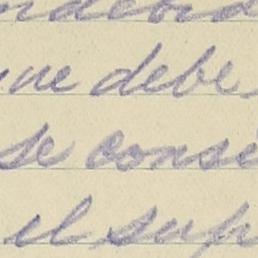 ne debe
se consi
el sup